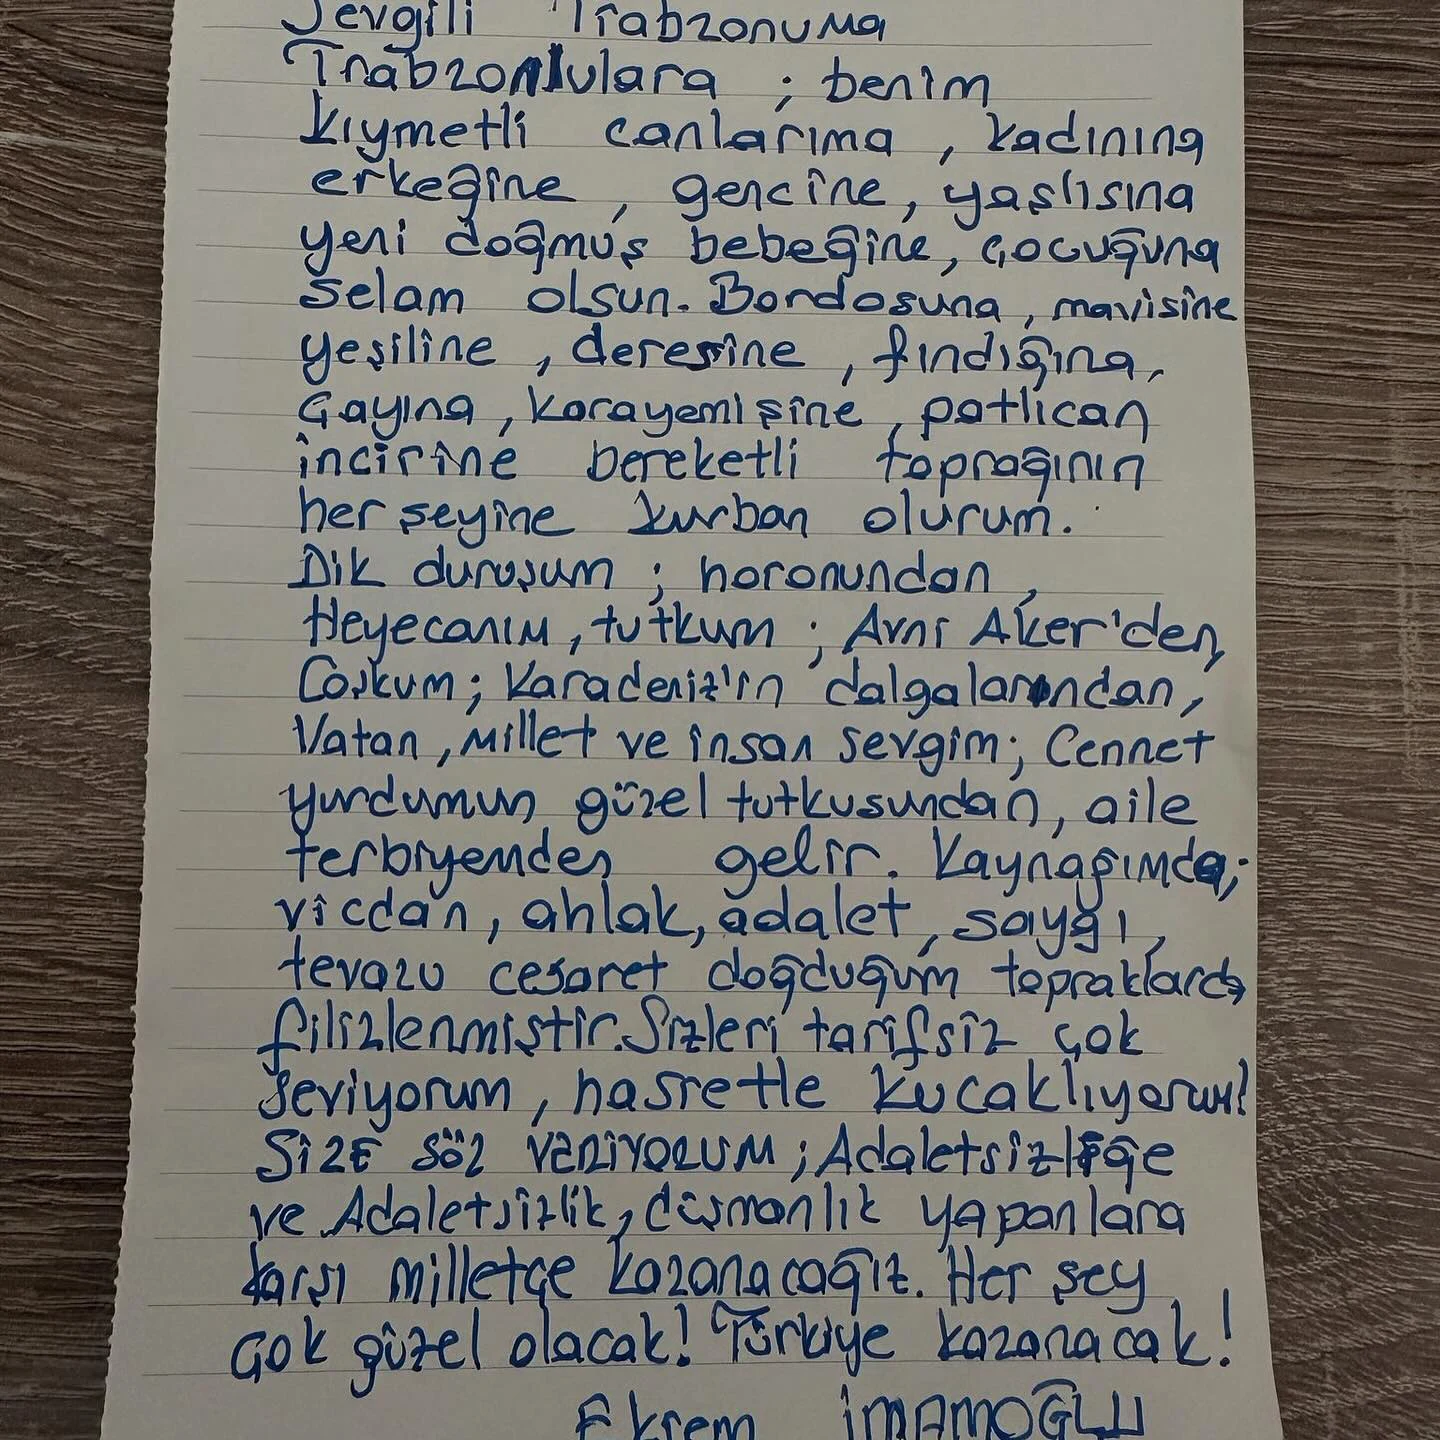 Sevgili Trabzonuma
Trabzonlulara ; benim
kıymetli canlarıma , kadınına
erkeğine , gencine, yaşlısına
yeni doğmuş bebeğine, çocuğuna
selam olsun. Bordosuna, mavisine
yeşiline , deresine , fındığına,
Çayına, karayemişine, patlıcan
incirine bereketli toprağının
her şeyine kurban olurum.
Dik duruşum ; horonundan ,
Heyecanım, tutkum ; Avni Aker'den,
Coşkum; Karadeniz'in dalgalarından,
Vatan, Millet ve insan sevgim; Cennet
yurdumun güzel tutkusundan, aile
terbiyemden gelir. Kaynağımda;
vicdan, ahlak, adalet, saygı,
tevazu cesaret doğduğum topraklarda
filizlenmiştir. Sizleri tarifsiz çok
seviyorum , hasretle kucaklıyorum!
SİZE SÖZ VERİYORUM ; Adaletsizliğe
ve Adaletsizlik, düşmanlık yapanlara
karşı milletçe kazanacağız. Her şey
çok güzel olacak! Türkiye kazanacak!
Ekrem İMAMOĞLU